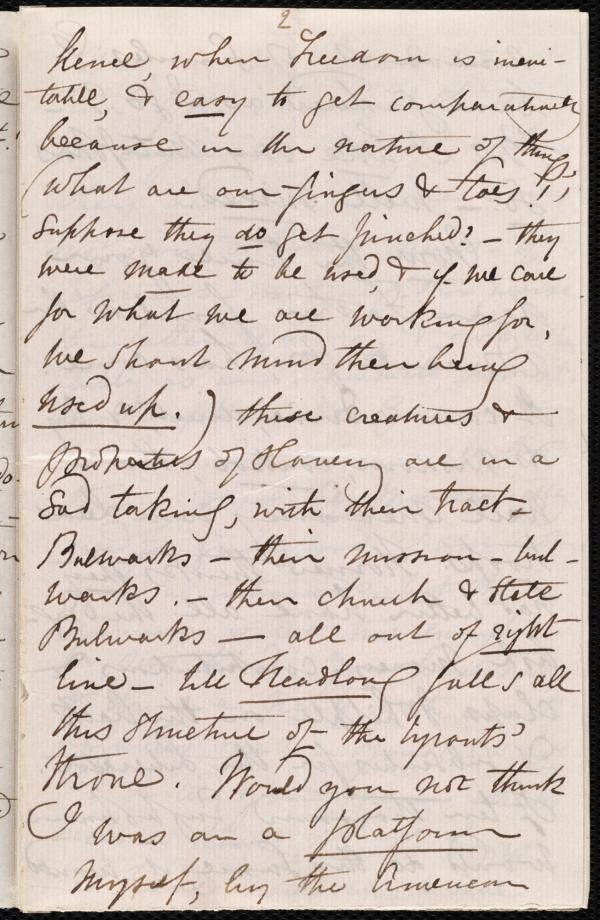 2
when Freedom is inevi-
table, & easy to get comparatively
because in the nature of things,
(what are our fingers & toes!,
suppose they do get pinched? - they
were made to be used, & if we care
for what we are working for,
we shant mind their being
used up.) these creatures &
of slavery are in a
sad taking, with their tract-
Bulwarks - their mission - bul-
warks. - their church & State
Bulwarks — all out of right
line - till Headlong falls all
this structure of the tyrants'
throne. Would you not think
I was on a platform
myself, by the American